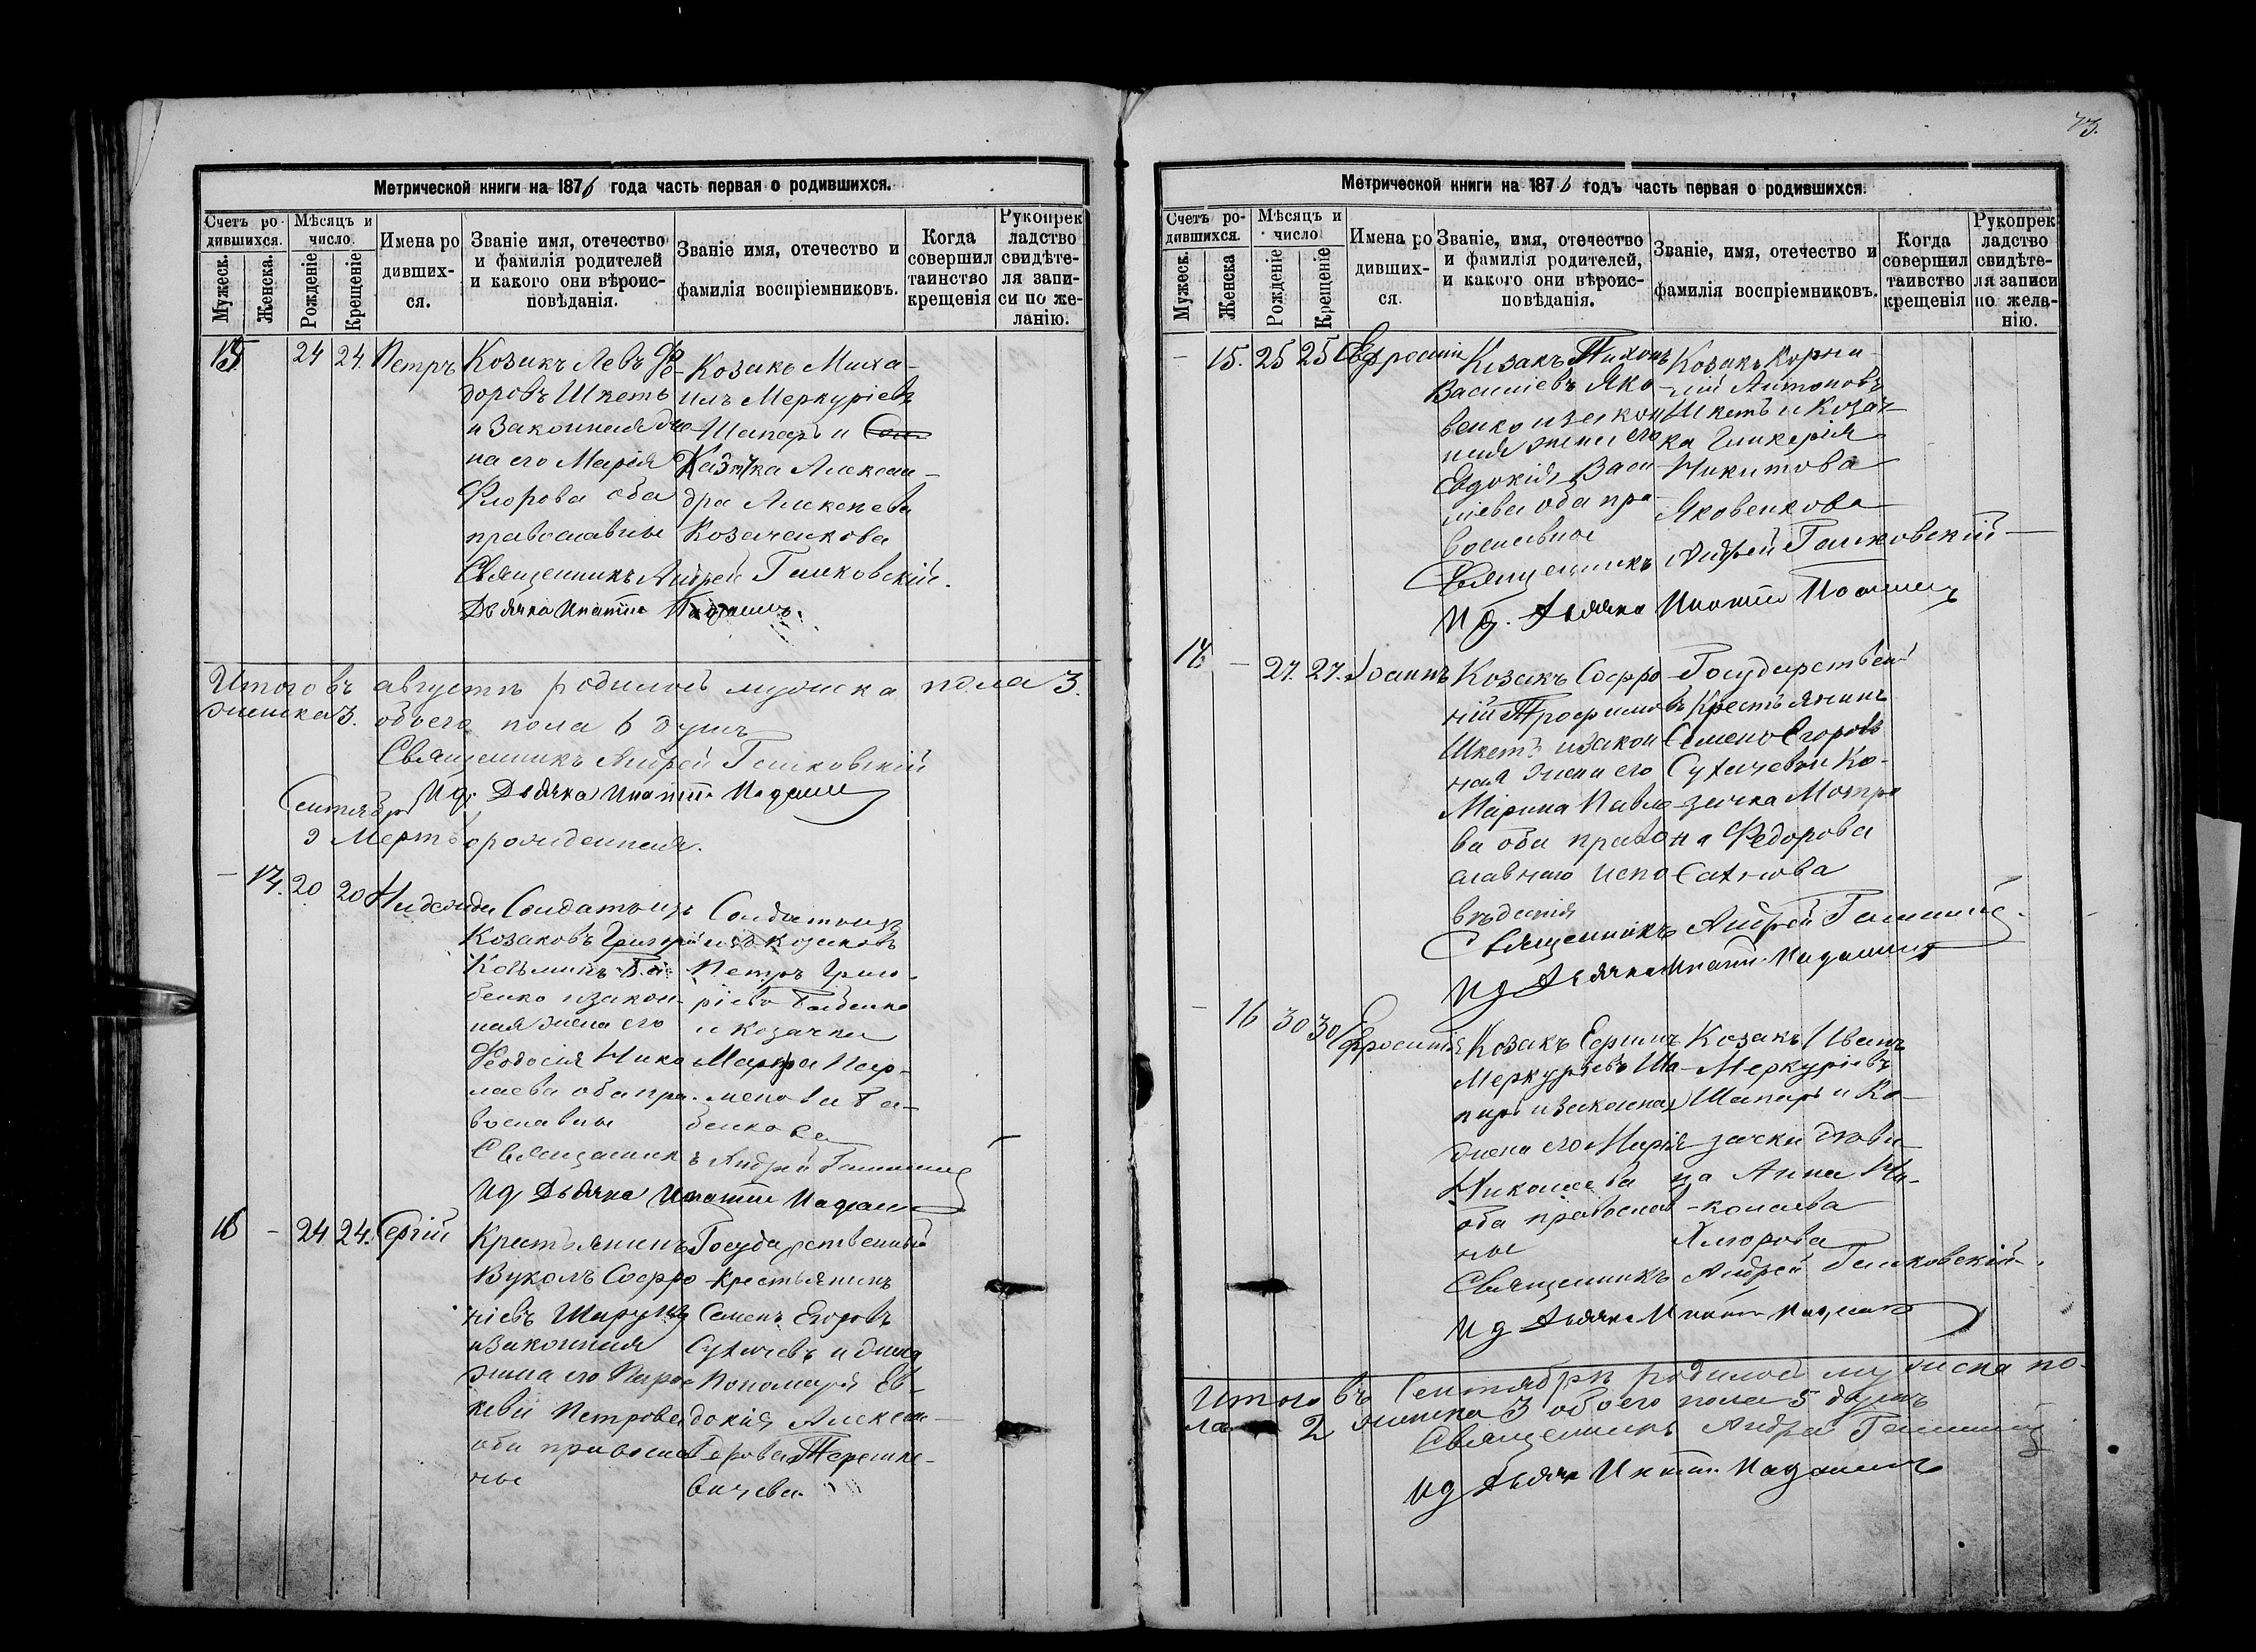 73.
Метрической книги на 1876 года часть первая о родившихся.
Счетъ ро-
дившихся.
Мѣсяцъ и
число.
Мужеск.
Женска.
Рожденіе
Крещеніе
Имена ро
дивших-
ся.
Званіе имя, отечество
и фамилія родителей
и какого они вѣроис-
повѣданія.
Званіе имя, отечество и
фамилія воспріемниковъ.
Когда
совершил
таинство
крещенія
Рукопрек
ладство
свидѣте-
ля запи-
си по же-
ланію.
24 24. Петръ
Козакъ Левъ Фе-
доровъ Шкеть
и законная же-
на его Марія
Флорова оба
православные
Козакъ Миха-
илъ Меркуріевъ
Шапаръ и
Козачка Алексан-
дра Алексеева
Козаченкова
Священникъ Андрей
Дьячка Игнатій
Итого въ августѣ родилось мужеска пола 3.
женска 3. обоего пола 6 душъ
Священникъ Андрей
Ид. Дьячка Игнатій
Сентябрь
Мертворожденная.
– 14. 20 20 Надежда
Солдатъ изъ
Козаковъ Григорій
Козьминъ
бенко и закон-
ная жена его
Феодосія Нико
лаева оба пра-
вославные
Солдатъ изъ
козаковъ
Петръ Григо-
ріевъ
и козачка
Марфа Пар-
менова Ба-
бенкова
Священникъ Андрей
Ид Дьячка Игнатій
– 24 24. Сергій
Крестьянинъ
Вуколъ Софро
ніевъ
и законная
жена его Парас
кева Петрова
оба православ
ные
Государственный
Крестьянинъ
Семенъ Егоровъ
Сухачевъ и жена
Пономаря Ев-
докія Алексан-
дрова
Метрической книги на 1876 годъ часть первая о родившихся.
Счетъ ро-
дившихся.
Мѣсяцъ и
число
Мужеск.
Женска
Рожденіе
Крещеніе
Имена ро
дивших-
ся.
Званіе, имя, отечество
и фамилія родителей,
и какого они вѣроис-
повѣданія.
Званіе, имя, отечество и
фамилія воспріемниковъ.
Когда
совершил
таивство
крещенія
Рукопрек
ладство
свидѣте-
ля записи
по жела-
нію.
– 15. 25 25
Козакъ Тихонъ
Василіевъ Яко
венко и закон
ная жена его
Евдокія Васи
ліева оба пра
вославные
Козакъ Корни-
лій Антоновъ
Шкеть и Козач-
ка Гликерія
Никитова
Яковенкова
Священникъ Андрей
Ид. Дьячка Игнатій
– 27. 27. Іоаннъ
Козакъ Софро
ній Трофимовъ
Шкеть и закон
ная жена его
Марина Павло
ва оба право
славнаго испо
вѣданія
Государствен
Крестьянинъ
Семенъ Егоровъ
Сухачевъ и Ко-
зачка Мотро
на Федорова
Священникъ Андрей
Ид Дьячка Игнатій
– 16 30 30 Ефросинія
Козакъ Ефимъ
Меркуріевъ Ша-
паръ и законная
жена его Марія
Николаева
оба православ
ные
Козакъ Иванъ
Меркуріевъ
Шапаръ и Ко-
зачка
Анна Ни-
колаева
Священникъ Андрей
Ид Дьячка Игнатій
Итого въ Сентябрѣ родилось мужеска по-
ла 2 женска 3 обоего пола 5 душъ
Священникъ Андрей
Ид Дьячка Игнатій